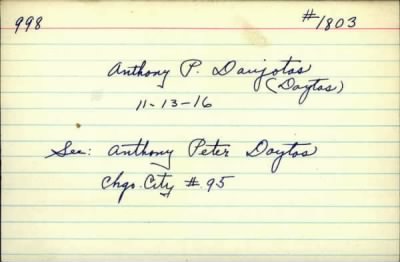 998 #1803
Anthony P. Daujotas
(Doytas)
11-13-16
See: Anthony Peter Doytas
Chgo. City #95